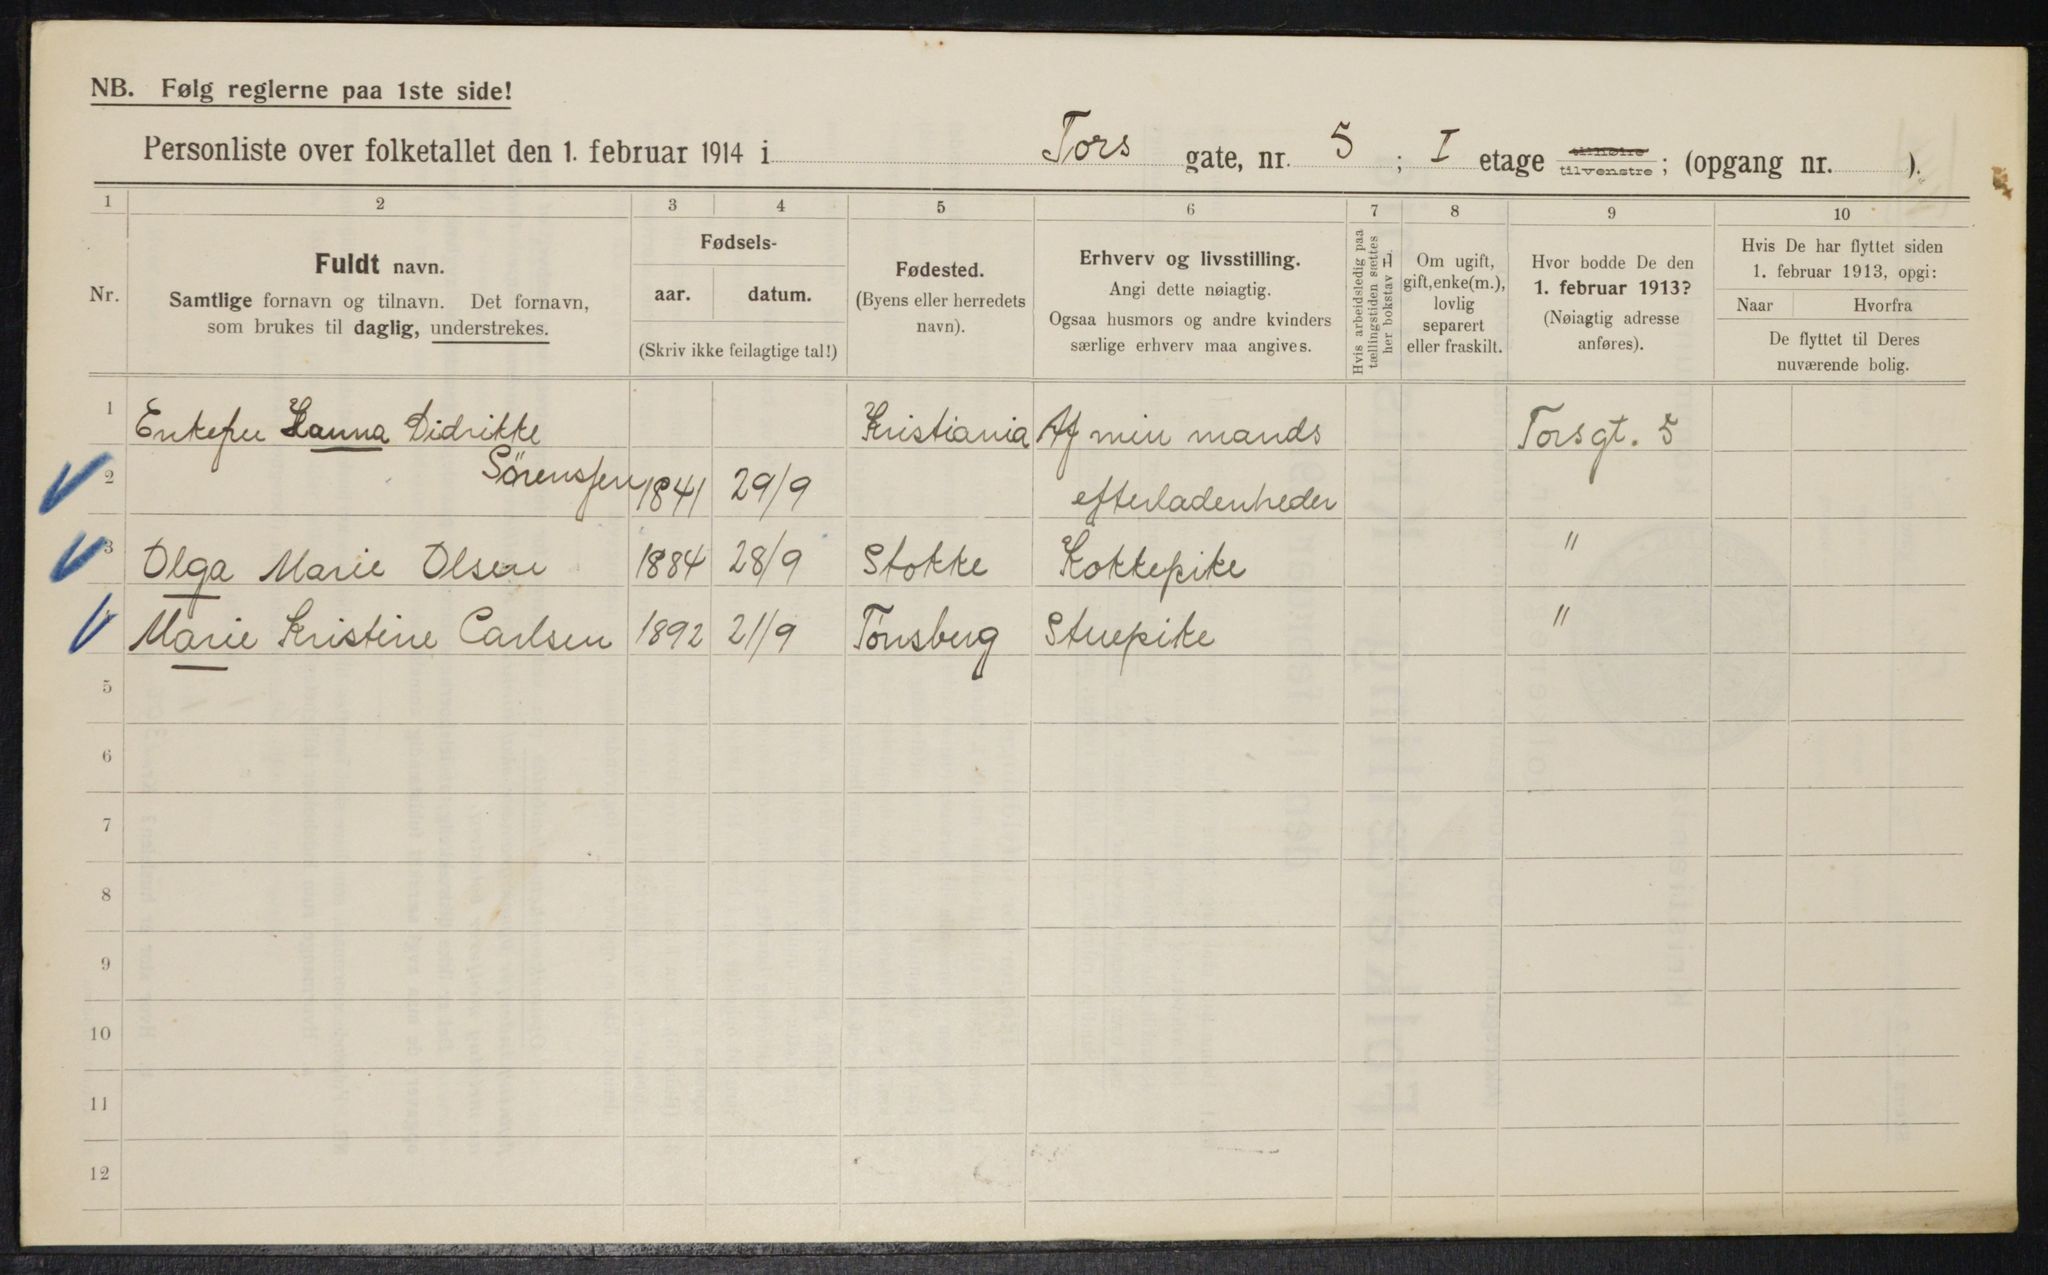 NB. Følg reglerne paa 1ste side!
Personliste over folketallet den 1. februar 1914 i Tors gate, nr. 5 ; I etage tilhøire tilvenstre ; (opgang nr. ).
1 2 3 4 5 6 7 8 9 10
Nr.
Fuldt navn.
Samtlige fornavn og tilnavn. Det fornavn,
som brukes til daglig, understrekes.
Fødsels-
aar. datum.
(Skriv ikke feilagtige tal!)
Fødested.
(Byens eller herredets
navn).
Erhverv og livsstilling.
Angi dette nøiagtig.
Ogsaa husmors og andre kvinders
særlige erhverv maa angives.
Hvis arbeidsledig paa
tællingstiden sættes
her bokstav l
Om ugift,
gift, enke(m.),
lovlig
separert
eller fraskilt.
Hvor bodde De den
1. februar 1913?
(Nøiagtig adresse
anføres).
Hvis De har flyttet siden
1. februar 1913, opgi:
Naar Hvorfra
De flyttet til Deres
nuværende bolig.
1 Enkefru Hanna Didrikke Kristiania Af min mands Torsgt. 5
2 Sörenssen 1841 29/9 efterladenheder
3 Olga Marie Olsen 1884 28/9 Stokke Kokkepike "
Marie Kristine Carlsen 1892 21/9 Tönsberg Stuepike "
5
6
7
8
9
10
11
12